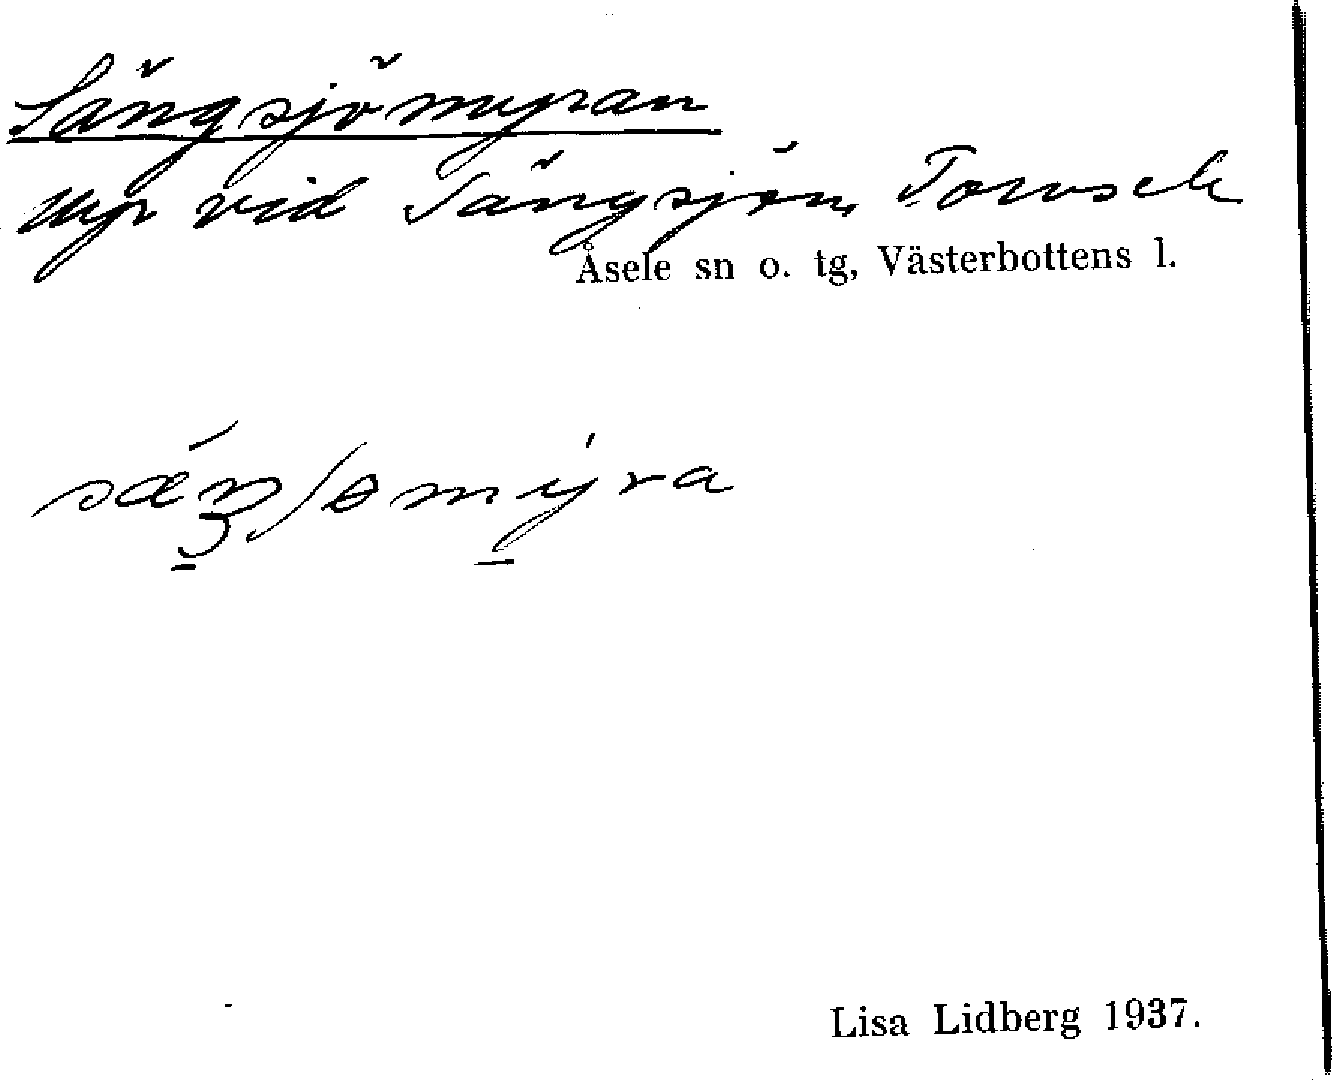 Sängsjömyran
Myr vid Sängsjön, Torvsele
Åsele sn o. tg, Västerbottens l.
Lisa Lidberg 1937.